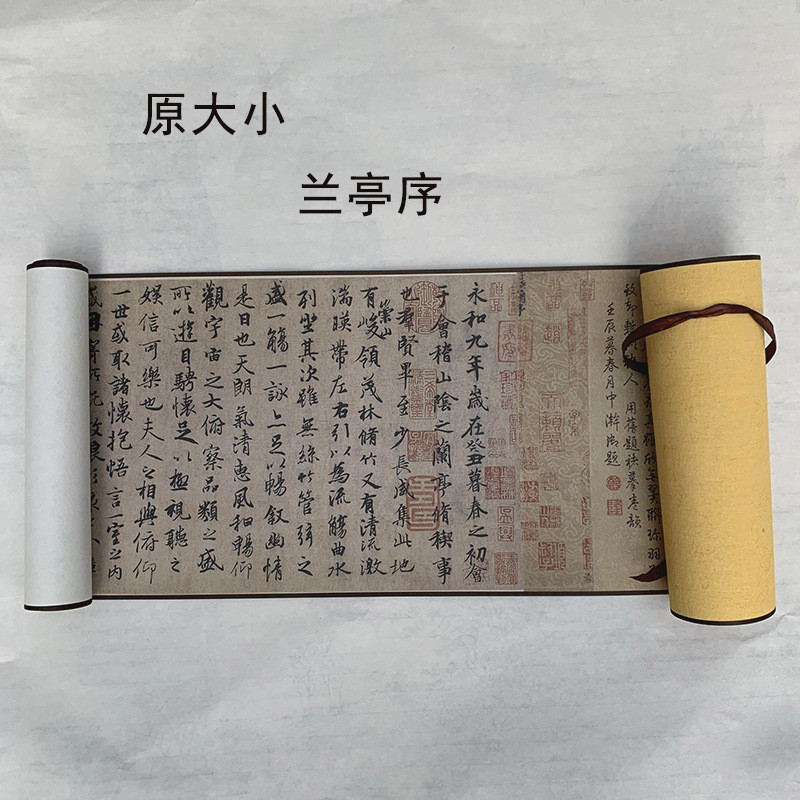 原大小
兰亭序
用舊題
壬辰暮春月中澣御題
永和九年歲在癸丑暮春之初會
于會稽山陰之蘭亭脩稧事
也羣賢畢至少長咸集此地
有崇山峻領茂林脩竹又有清流激
湍暎帶左右引以為流觴曲水
列坐其次雖無絲竹管弦之
盛一觴一詠亦足以暢敘幽情
是日也天朗氣清惠風和暢仰
觀宇宙之大俯察品類之盛
所以遊目騁懷足以極視聽之
娛信可樂也夫人之相與俯仰
一世或取諸懷抱悟言一室之內